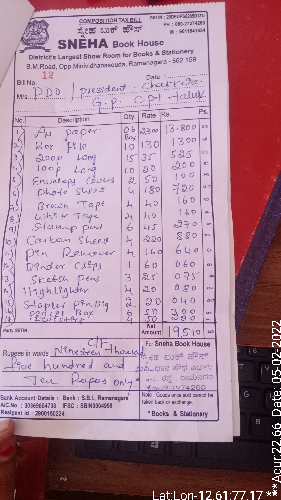 COMPOSITION TAX BILL
ಸ್ನೇಹ ಬುಕ್ ಹೌಸ್
SNEHA Book House
District's Largest Show Room for Books & Stationery
B.M.Road, Opp Minividhanasouda, Ramanagara - 562 159
Bill No. 12 Date
M/s. PDO / president
G.P.
No. Description Qty Rate Rs. Ps.
A4 paper 06 Box 2300 13.800
Box file 10 130 1300
200p long 15 35 525
100p long 10 20 200
Envelop covers 2 50 100
Photo sheet 4 180 720
Brown Tape 4 40 160
White Tape 4 40 160
Stamp pad 6 45 270
Carbon Sheet 4 220 880
Pin Remover 4 160 640
Binder Clips 1 60 060
Sketch pens 3 25 075
Highlighter 4 20 080
Stapler pin big 2 20 040
Party GSTIN. Net Amount 19510
Rupees in words Nineteen Thousand
five hundred and
Ten Rupees only
For Sneha Book House
Bank Account Details : Bank : S.B.I. Ramanagara
A/C.No : 30369604738 IFSC : SBIN0004898
Note: Goods once sold cannot be taken back or exchange.
* Books & Stationery
Lat:Lon-12.61:77.17
Acur:22.66 Date:05-02-2022